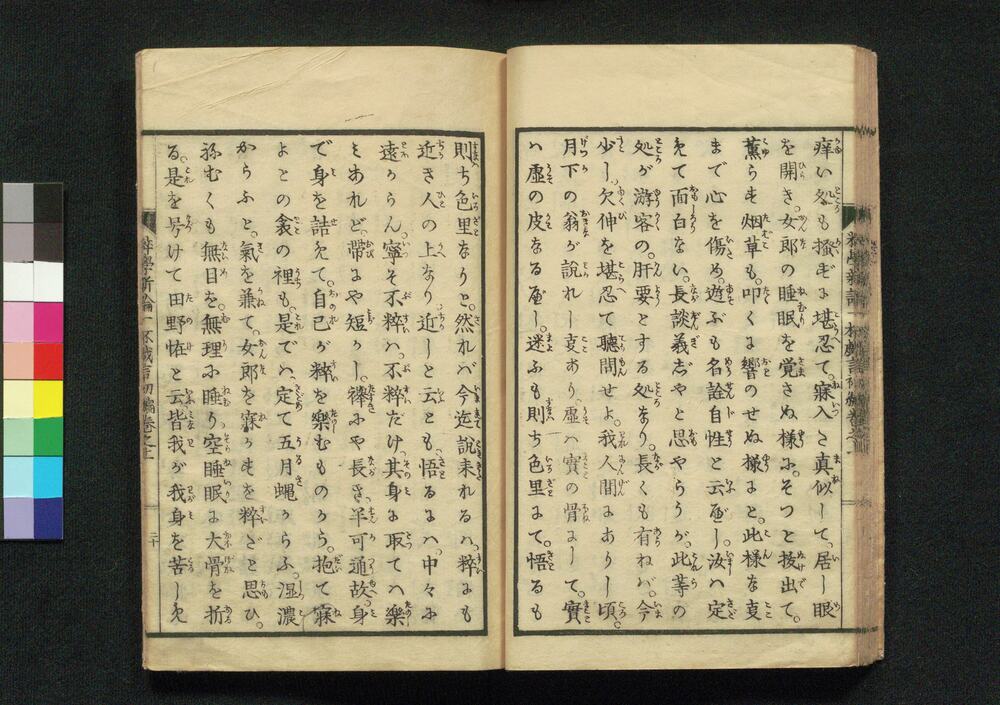 痒い処も搔ずに堪忍て。寐入た真似して。居し眼
を開き。女郎の睡眠を覚さぬ様に。そつと抜出て。
薫らす烟草も。叩くに響のせぬ様にと。此様な亊
まで心を傷め。遊ぶも名詮自性と云べし。汝ハ定
めて面白ない。長談義ぢやと思やらうが。此等の
処が游客の。肝要とする処なり。長くも有ねバ。今
少し。欠伸を堪忍て聴問せよ。我人間にありし頃。
月下の翁が説れし亊あり。虚ハ實の骨にして。實
ハ虚の皮なる屋し。迷ふも則ち色里にて。悟るも
則ち色里なりと。然れバ今迄説来れるハ。粋にも
近き人の上なり。近しと云とも。悟るにハ。中々に
遠からん。寧そ不粋ハ。不粋だけ。其身に取てハ樂
もあれど。帯にや短かし。襷にや長き。半可通故。身
で身を詰めて。自己が粹を樂むものから。抱て寐
よとの衾の裡も。是でハ定て五月蝿からふ。湿濃
からふと。氣を兼て。女郎を寐かすを粹だと思ひ。
孫むくも無目を。無理に睡り空睡眠に大骨を折
る。是を号けて田野恠と云。皆我が我身を苦しめ